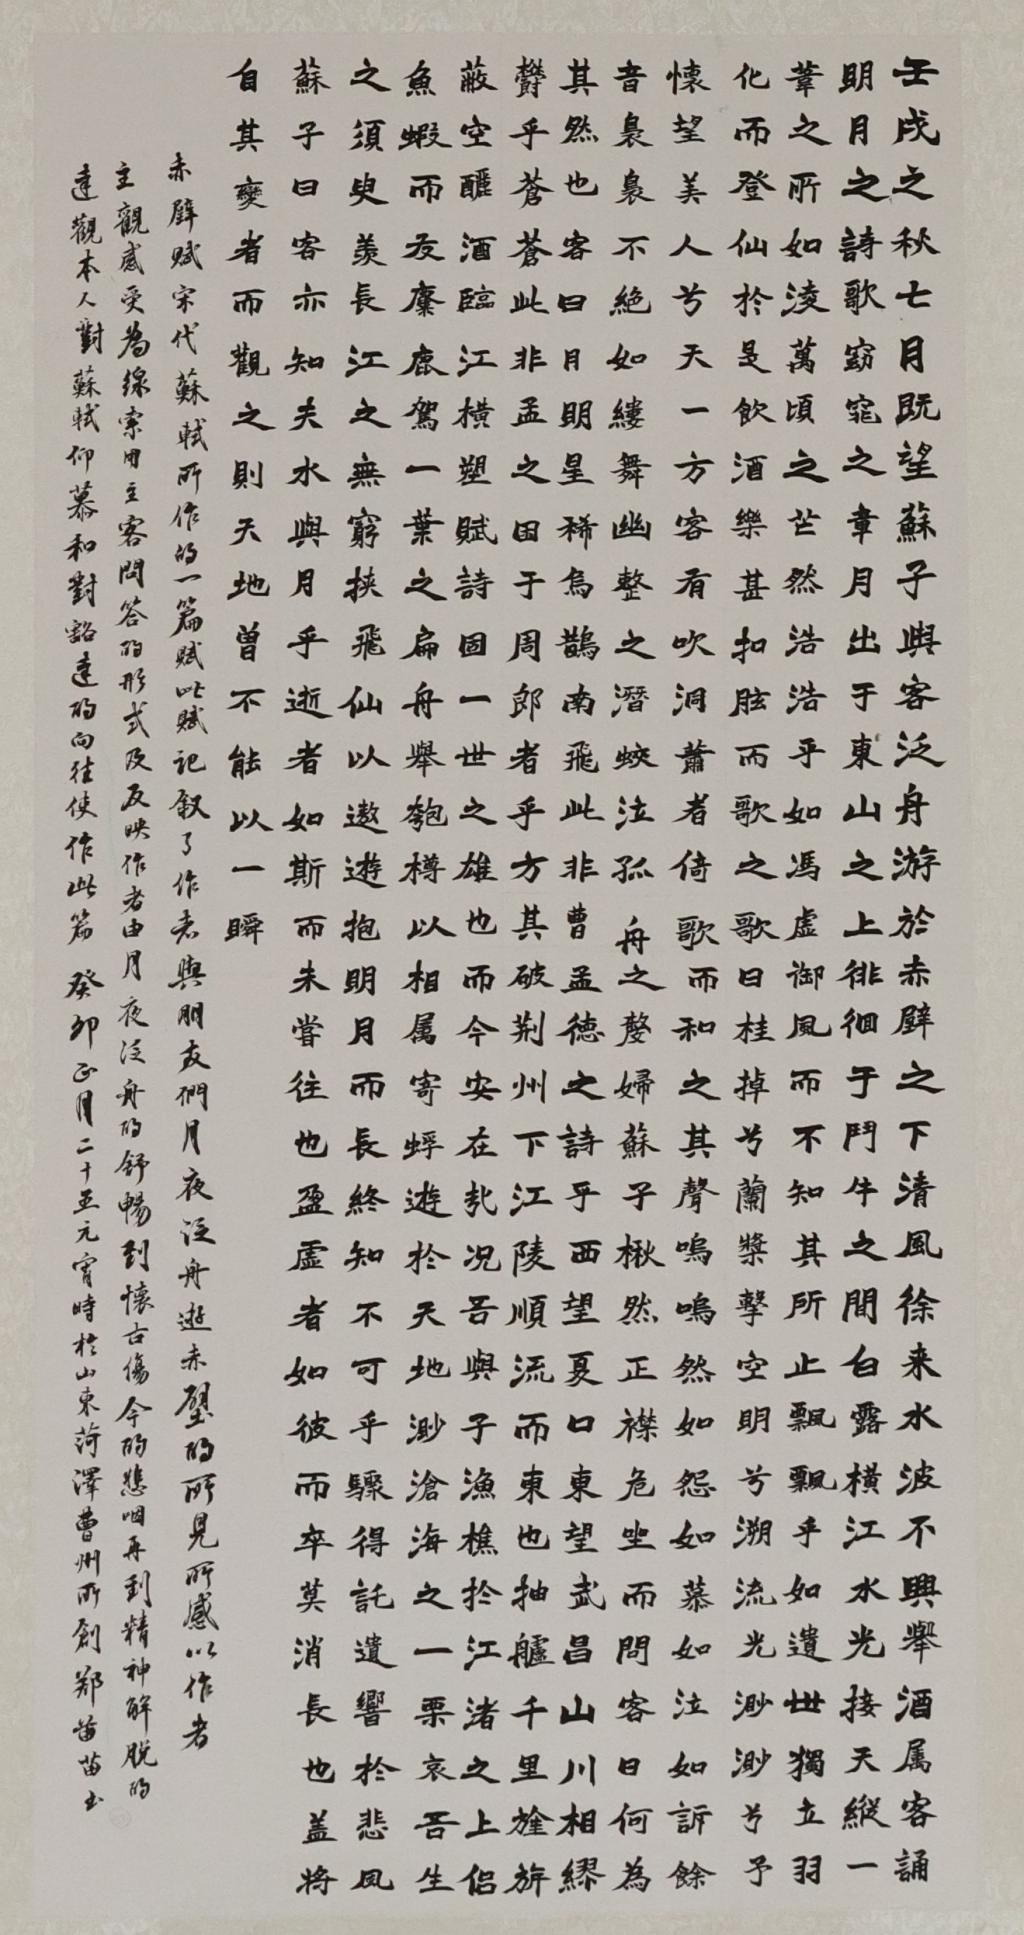 壬戌之秋七月既望蘇子與客泛舟游於赤壁之下清風徐来水波不興舉酒属客誦
明月之詩歌窈窕之章月出于東山之上徘徊于鬥牛之間白露横江水光接天縱一
葦之所如淩萬頃之茫然浩浩乎如馮虚御風而不知其所止飄飄乎如遺世獨立羽
化而登仙於是飲酒樂甚扣舷而歌之歌曰桂掉兮蘭槳擊空明兮溯流光渺渺兮予
懷望美人兮天一方客有吹洞蕭者倚歌而和之其聲嗚嗚然如怨如慕如泣如訴餘
音裊裊不絕如縷舞幽壑之潛蛟泣孤舟之嫠婦蘇子楸然正襟危坐而問客曰何為
其然也客曰月明星稀烏鵲南飛此非曹孟德之詩乎西望夏口東望武昌山川相繆
欝乎蒼蒼此非孟之困于周郎者乎方其破荆州下江陵順流而東也抽艫千里旌旂
蔽空釃酒臨江横塑賦詩固一世之雄也而今安在㢤况吾與子漁樵於江渚之上侣
魚蝦而友麋鹿駕一葉之扁舟舉匏樽以相属寄蜉遊於天地渺滄海之一栗哀吾生
之須臾羡長江之無窮挟飛仙以遨遊抱明月而長終知不可乎驟得託遺響於悲风
蘇子曰客亦知夫水與月乎逝者如斯而未嘗往也盈虚者如彼而卒莫消長也盖将
自其變者而觀之則天地曾不能以一瞬
赤壁賦宋代蘇軾所作的一篇賦此賦記叙了作者與朋友們月夜泛舟遊赤壁的所見所感以作者
主觀感受為線索用主客問答的形式及反映作者由月夜泛舟的舒暢到懷古傷今的悲咽再到精神解脱的
達觀本人對蘇軾仰慕和對豁達的向往使作此篇 癸卯正月二十五元宵時於山東菏澤曹州所創郑苗苗书